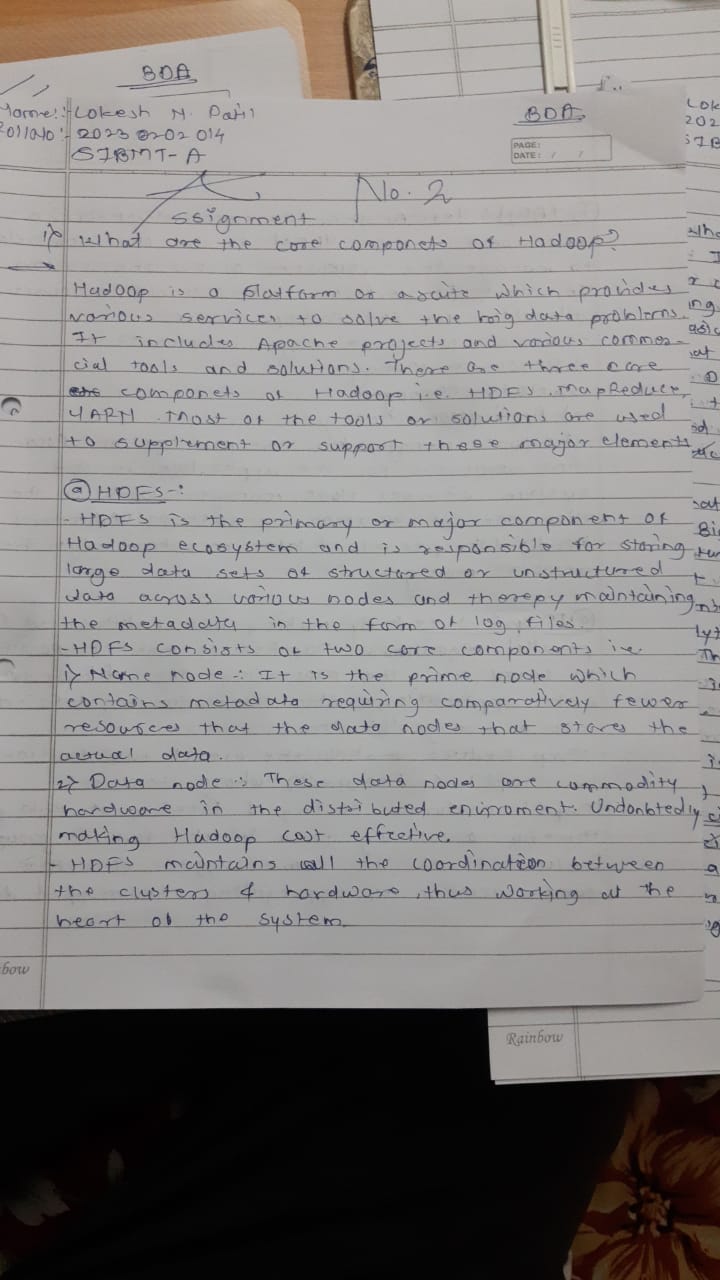 BDA
BDA
Name:- Lokesh N. Patil
Rollno:- 2023 0202 014
SIBMT-A
PAGE:
DATE: / /
Assignment No. 2
1) What are the core componets of Hadoop?
→
Hadoop is a platform or a suite which provides
various services to solve the big data problems.
It includes Apache projects and various commer-
cial tools and solutions. There are three core
componets of Hadoop i.e. HDFS, MapReduce,
YARN. Most of the tools or solutions are used
to supplement or support these major elements
a) HDFS-:
- HDFS is the primary or major component of
Hadoop ecosystem and is responsible for storing
large data sets of structured or unstructured
data across various nodes and therepy maintaining
the metadata in the form of log files.
- HDFS consists of two core components i.e.
1) Name node-: It is the prime node which
contains metadata requiring comparatively fewer
resources that the data nodes that stores the
actual data.
2) Data node-: These data nodes are commodity
hardware in the distributed enviroment. Undoubtedly
making Hadoop cost effective.
- HDFS maintains all the coordination between
the clusters & hardware, thus working at the
heart of the system.
bow
Rainbow